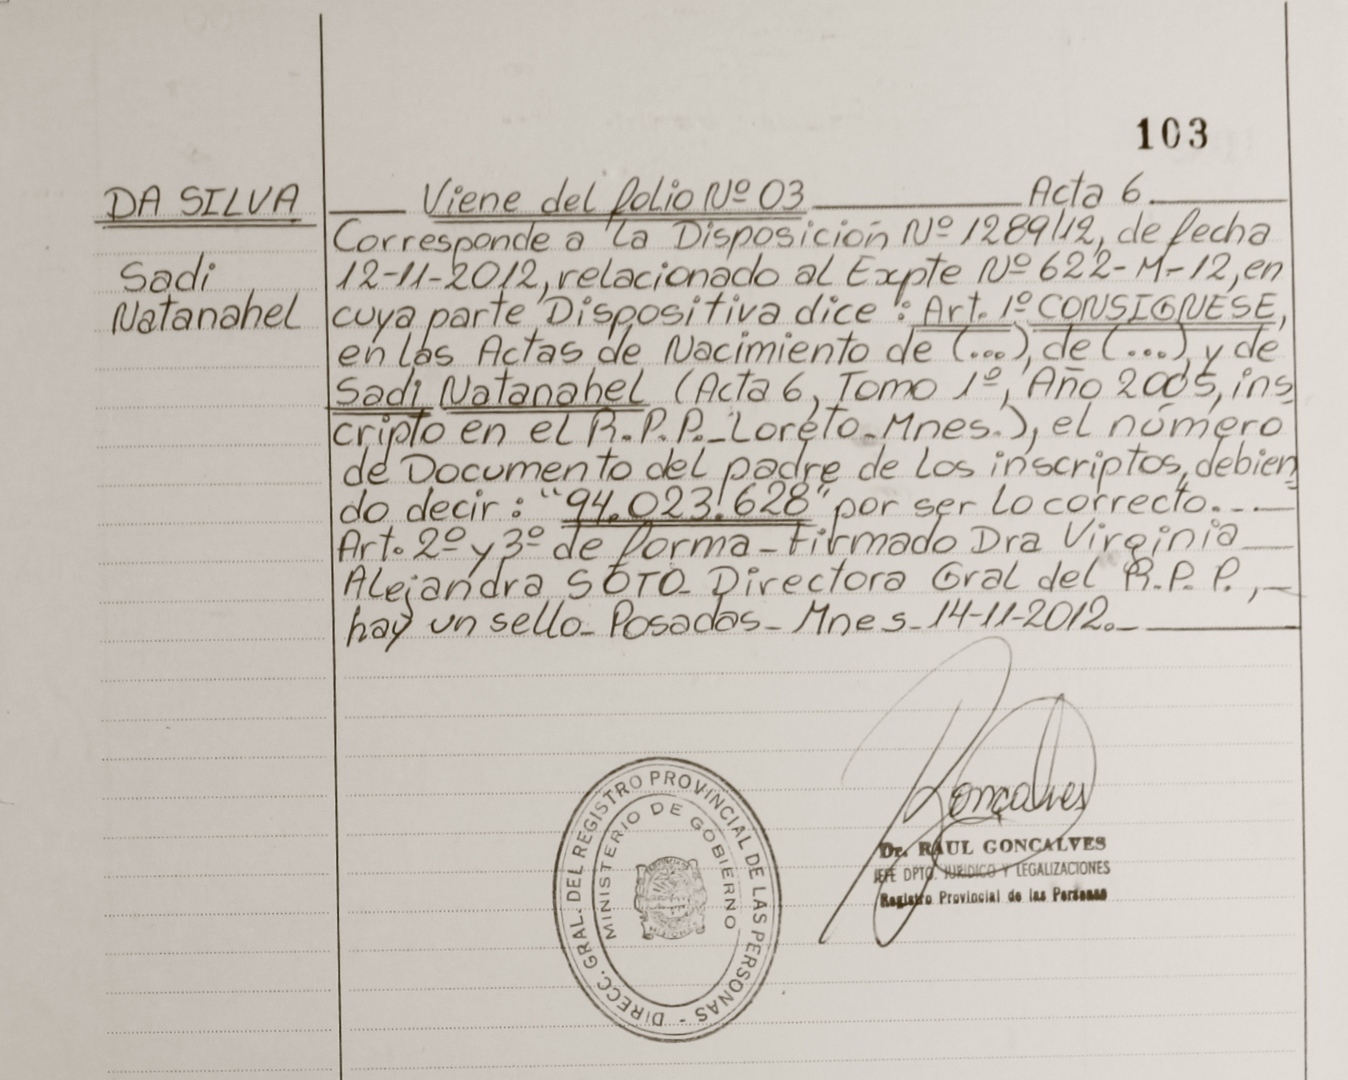 103
DA SILVA
Sadi
Natanahel
Viene del folio Nº 03 Acta 6
Corresponde a la Disposición Nº 1289/12, de fecha
12-11-2012, relacionado al Expte Nº 622-M-12, en
cuya parte Dispositiva dice: Art. 1º CONSIGNESE,
en las Actas de Nacimiento de (...), de (...) y de
Sadi Natanahel (Acta 6, Tomo 1º, Año 2005, ins
cripto en el R.P.P.-Loreto-Mnes.), el número
de Documento del padre de los inscriptos, debien
do decir: "94.023.628" por ser lo correcto.---
Art. 2º y 3º de forma-Firmado Dra Virginia
Alejandra SOTO- Directora Gral del R.P.P.,-
hay un sello- Posadas- Mnes-14-11-2012.-
Goncalves
Dr. RAUL GONCALVES
JEFE DPTO. JURIDICO Y LEGALIZACIONES
Registro Provincial de las Personas
DIRECC. GRAL. DEL REGISTRO PROVINCIAL DE LAS PERSONAS -
MINISTERIO DE GOBIERNO